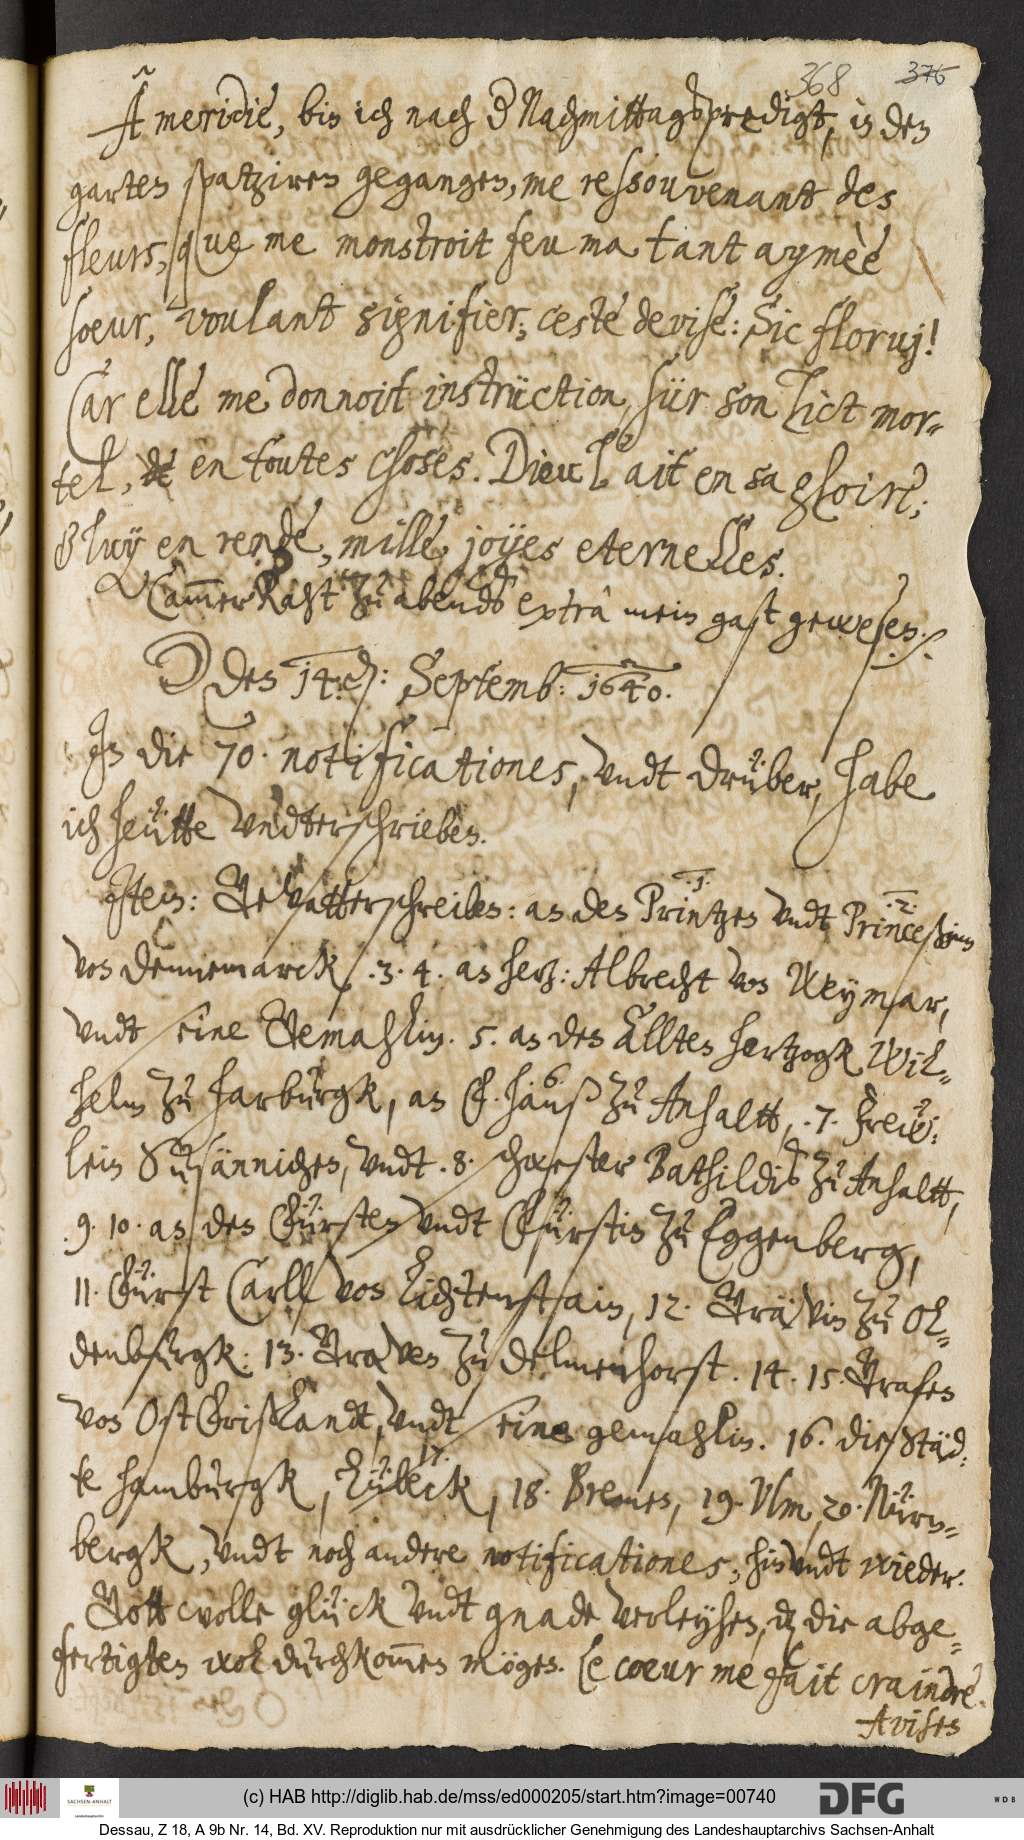 368 376
A meridie, bin ich nach d Nachmittagspredigt, in den
garten spatziren gegangen, me ressouvenant des
fleurs, que me monstroit feu ma tant aymèe
soeur, voulant signifier, ceste devise: Sic floruj!
Car elle me donnoit instrüction, sür son lict mor-
tel, et en toutes choses. Dieu l'ait en sa gloire,
& luy en rende, mille joÿes eternelles.
CammerRaht zu abends extra mein gast gewesen.
den 14. d: Septemb: 1640.
In die 70. notificationes, vndt drüber, habe
ich heütte vndterschrieben.
Item: Gevatterschreiben: an den 1. Printzen vndt 2. Princeßinn
von Dennemarck, .3. 4. an herz: Albrecht von Weymar,
vndt seine Gemahlin. 5. an den Ellten hertzogk Wil-
helm zu harburgk, an F. 6. hauß zu Anhaltt, .7. Frew-
lein Susännichen, vndt .8. schwester Bathildis zu Anhaltt,
.9. 10. an den Fürsten vndt Fürstin zu Eggenberg,
11. Fürst Carll von Lichtenstain, 12. Grävin zu Ol-
denburgk: 13. Graven zu Delmenhorst. 14. 15. Grafen
von OstFrißlandt, vndt seine gemahlin. 16. die Städ-
te hamburgk, 17. Lübeck, 18. Bremen, 19. Vlm, 20. Nürn-
bergk, vndt noch andere notificationes, hin vndt wieder.
Gott wolle glück vndt gnade verleyhen, dz die abge-
fertigten wol durchkommen mögen. Le coeur me fait craindre.
Avisen
(c) HAB http://diglib.hab.de/mss/ed000205/start.htm?image=00740
SACHSEN-ANHALT
DFG
WDB
Dessau, Z 18, A 9b Nr. 14, Bd. XV. Reproduktion nur mit ausdrücklicher Genehmigung des Landeshauptarchivs Sachsen-Anhalt